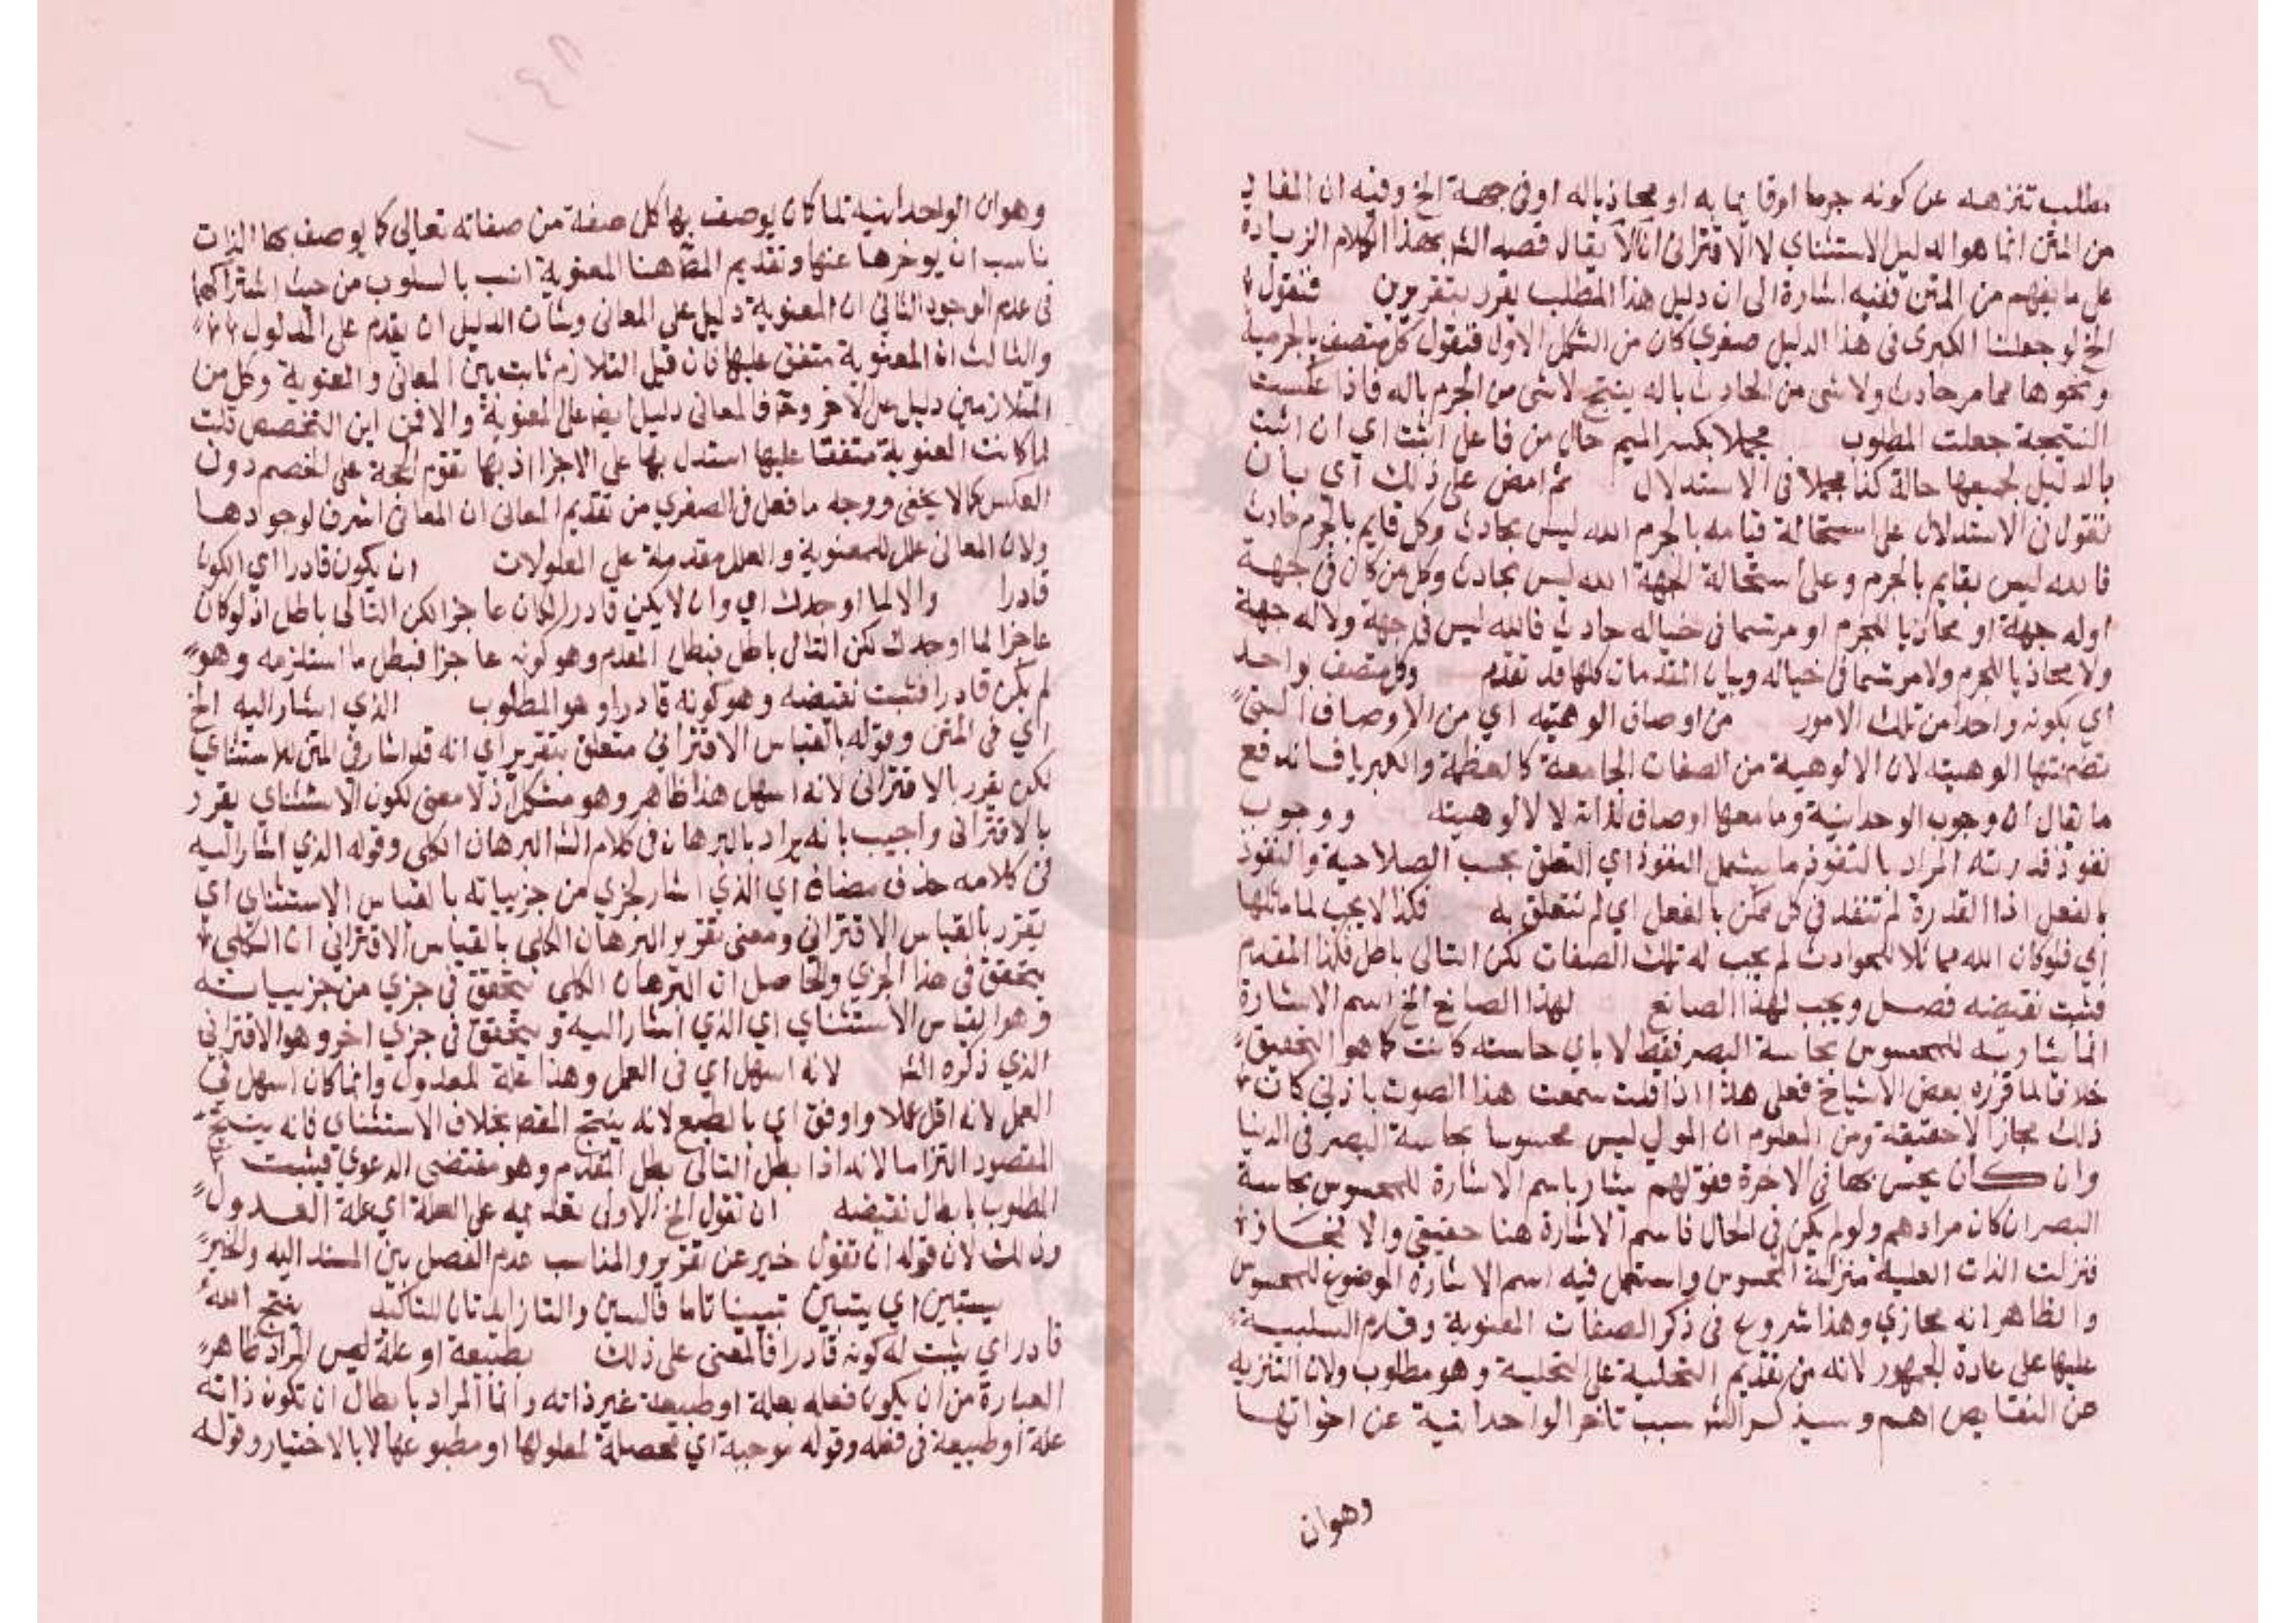 مطلب تنزهه عن كونه جرما او قايما به او محاذيا له او في جهة الخ وفيه ان المفاد
من المتن انما هو الدليل الاستثناي لا الاقتراني الا ان يقال قصد الش بهذا الكلام الزيادة
على ما يفهم من المتن ففيه اشارة الى ان دليل هذا المطلب يقرر بتقريرين فنقول
الخ لو جعلنا الكبرى في هذا الدليل صغرى كان من الشكل الاول فنقول كل متصف بالجرمية
ونحوها مما مر حادث ولا شي من الحادث باله ينتج لا شي من الجرم باله فاذا عكست
النتيجة جعلت المطلوب مجملا بكسر الميم حال من فاعل اثبت اي ان اثبت
بالدليل لجميعها حالة كذا مجملا في الاستدلال ثم امض على ذلك اي بان
تقول في الاستدلال على استحالة قيامه بالجرم الله ليس بحادث وكل قايم بالجرم حادث
فالله ليس بقايم بالجرم وعلى استحالة الجهة الله ليس بحادث وكل من كان في جهة
او له جهة او محاذيا للجرم او مرتسما في خياله حادث فالله ليس في جهة ولا له جهة
ولا محاذيا للجرم ولا مرتسما في خياله وبيان المقدمات كلها قد تقدم وكل متصف بواحد
اي بكونه واحدا من تلك الامور من اوصاف الوهيته اي من الاوصاف التي
تضمنتها الوهيته لان الالوهية من الصفات الجامعة كالعظمة والكبريا فاندفع
ما يقال ان وجوب الوحدانية وما معها اوصاف لذاته لا لالوهيته ووجوب
نفوذ قدرته المراد بالنفوذ ما يشمل النفوذ اي التعلق بحسب الصلاحية والنفوذ
بالفعل اذ القدرة لم تنفذ في كل ممكن بالفعل اي لم تتعلق به فكذا لا يجب لما ماثلها
اي فلو كان الله مماثلا للحوادث لم يجب له تلك الصفات لكن التالي باطل فكذا المقدم
فثبت نقيضه فصل ويجب لهذا الصانع لهذا الصانع الخ اسم الاشارة
انما يشار به للمحسوس بحاسة البصر فقط لا باي حاسته كانت كما هو التحقيق
خلافا لما قرره بعض الاشياخ فعلى هذا اذا قلت سمعت هذا الصوت باذني كان
ذلك مجازا لا حقيقة ومن المعلوم ان المولى ليس محسوسا بحاسة البصر في الدنيا
وان كان يحس بها في الاخرة فقولهم يشار باسم الاشارة للمحسوس بحاسة
البصر ان كان مرادهم ولو لم يكن في الحال فاسم الاشارة هنا حقيقي والا فمجاز
فنزلت الذات العلية منزلة المحسوس واستعمل فيه اسم الاشارة الموضوع للمحسوس
والظاهر انه مجازي وهذا شروع في ذكر الصفات المعنوية وقدم السلبية
عليها على عادة الجمهور لانه من تقديم التخلية على التحلية وهو مطلوب ولان التنزيه
عن النقايص اهم وسيذكر الش سبب تاخر الواحدانية عن اخواتها
وهوان
وهو ان الواحدانية لما كان يوصف بها كل صفة من صفاته تعالى كما يوصف بها الذات
ناسب ان يوخرها عنها وتقديم المص هنا المعنوية انسب بالسلوب من حيث اشتراكها
في عدم الوجود الثاني ان المعنوية دليل على المعاني وشان الدليل ان يقدم على المدلول
والثالث ان المعنوية متفق عليها فان قيل التلازم ثابت بين المعاني والمعنوية وكل من
المتلازمين دليل على الاخر وح فالمعاني دليل ايضا على المعنوية والا فمن اين التخصص قلت
لما كانت المعنوية متفقا عليها استدل بها على الاخرى اذ بها تقوم الحجة على الخصم دون
العكس كما لا يخفى ووجه ما فعل في الصغرى من تقديم المعاني ان المعاني اشرف لوجودها
ولان المعاني علل للمعنوية والعلل مقدمة على المعلولات ان يكون قادرا اي الكون
قادرا والا لما اوجدك اي وان لا يكن قادرا لكان عاجزا لكن التالي باطل اذ لو كان
عاجزا لما اوجدك لكن التالي باطل فبطل المقدم وهو كونه عاجزا فبطل ما استلزمه وهو
لم يكن قادرا فثبت نقيضه وهو كونه قادرا وهو المطلوب الذي اشار اليه الخ
اي في المتن وقوله بالقياس الاقتراني متعلق بتقرير اي انه قد اشار في المتن للاستثناي
لكن يقرر بالاقتراني لانه اسهل هذا ظاهره وهو مشكل اذ لا معنى لكون الاستثناي يقرر
بالاقتراني واجيب بانه يراد بالبرهان في كلام الش البرهان الكلي وقوله الذي اشار اليه
في كلامه حذف مضاف اي الذي اشار لجزي من جزيياته بالقياس الاستثناي اي
يقرر بالقياس الاقتراني ومعنى تقرير البرهان الكلي بالقياس الاقتراني ان الكلي
يتحقق في هذا الجزي والحاصل ان البرهان الكلي يتحقق في جزي من جزيياته
وهو القياس الاستثناي اي الذي اشار اليه ويتحقق في جزي اخر وهو الاقتراني
الذي ذكره الش لانه اسهل اي في العمل وهذا علة للعدول وانما كان اسهل في
العمل لانه اقل عملا واوفق اي بالطبع لانه ينتج المقص بخلاف الاستثناي فانه ينتج
المقصود التزاما لانه اذا بطل التالي بطل المقدم وهو مقتضى الدعوى فيثبت
المطلوب بابطال نقيضه ان تقول الخ الاولى تقديمه على العلة اي علة العدول
وذلك لان قوله ان تقول خبر عن تقرير والمناسب عدم الفصل بين المسند اليه والخبر
يستبين اي يتبين تبيينا تاما فالسين والتا زايدتان للتاكيد ينتج الله
قادر اي يثبت له كونه قادرا فالمعنى على ذلك بطبيعة او علة ليس المراد ظاهر
العبارة من ان يكون فعله بعلة او طبيعة غير ذاته وانما المراد بابطال ان تكون ذاته
علة او طبيعة في فعله وقوله موجبة اي محصلة لمعلولها او مطبوعها لا بالاختيار وقوله